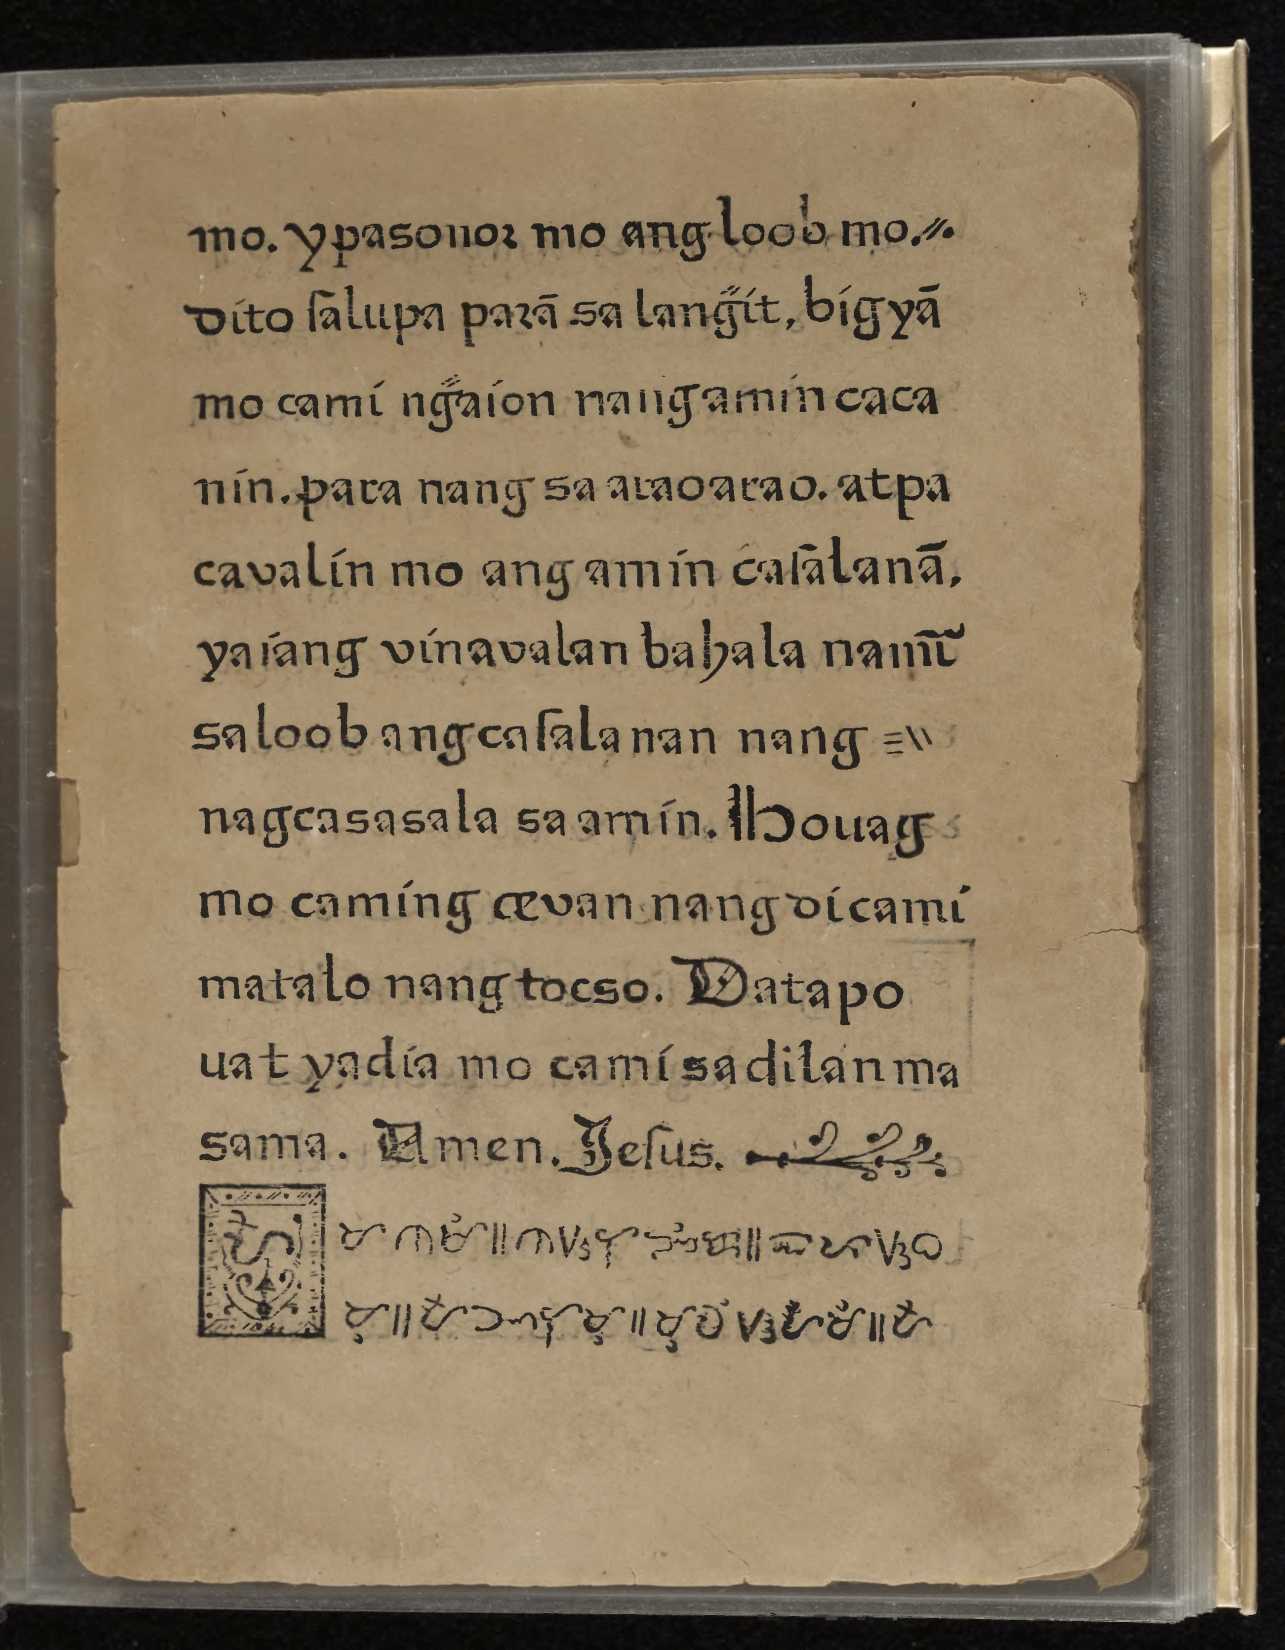 mo. ypasonor mo ang loob mo.
dito sãlupa parã sa lang̃it, bigyã
mo cami ng̃aion nang amin caca
nin. para nang sa araoarao. at pa
cavalin mo ang amin casãlanã,
yaiang vinavalan bahala namĩ
sa loob ang casalanan nang
nagcasasala sa amin. Houag
mo caming œvan nang di cami
matalo nang tocso. Datapo
uat yadia mo cami sa dilan ma
sama. Amen. Jesus.
ᜀᜋᜈᜋᜒ᜶ᜈᜐᜎᜅᜒᜃ᜶ᜁᜉᜐᜊ
ᜋᜓ᜶ᜀᜅᜎᜋᜓ᜶ᜋᜓᜏᜒᜐᜀᜋᜒ᜶ᜀ